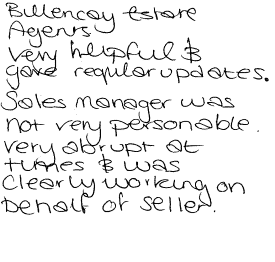 Billericay Estate
Agents
very helpful &
gave regular updates.
Sales manager was
not very personable.
very abrupt at
times & was
clearly working on
behalf of seller.